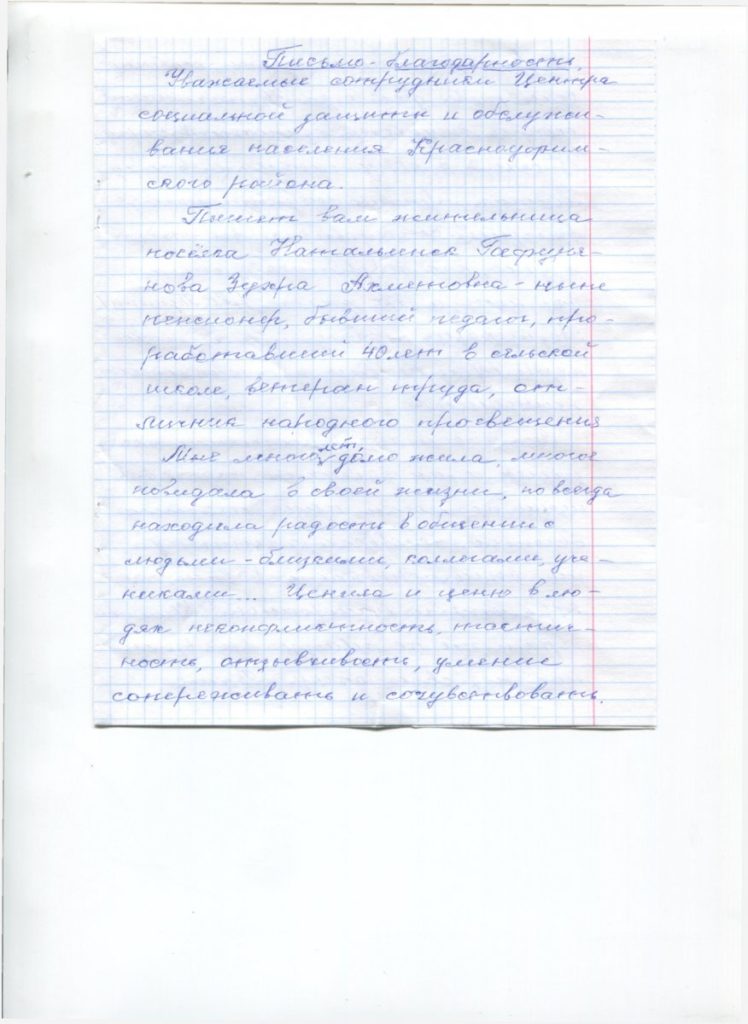 Письмо-благодарность.
Уважаемые сотрудники Центра
социальной защиты и обслужи-
вания населения Красноуфим-
ского района.
Пишет вам жительница
посёлка Натальинск Гафуня-
нова Зухра Ахметовна - ныне
пенсионер, бывший педагог, про-
работавший 40 лет в сельской
школе, ветеран труда, от-
личник народного просвещения
Мне много лет, долго жила, многое
повидала в своей жизни, но всегда
находила радость в общении с
людьми - близкими, коллегами, уче-
никами... Ценила и ценю в лю-
дях неконфликтность, тактич-
ность, отзывчивость, умение
сопереживать и сочувствовать.